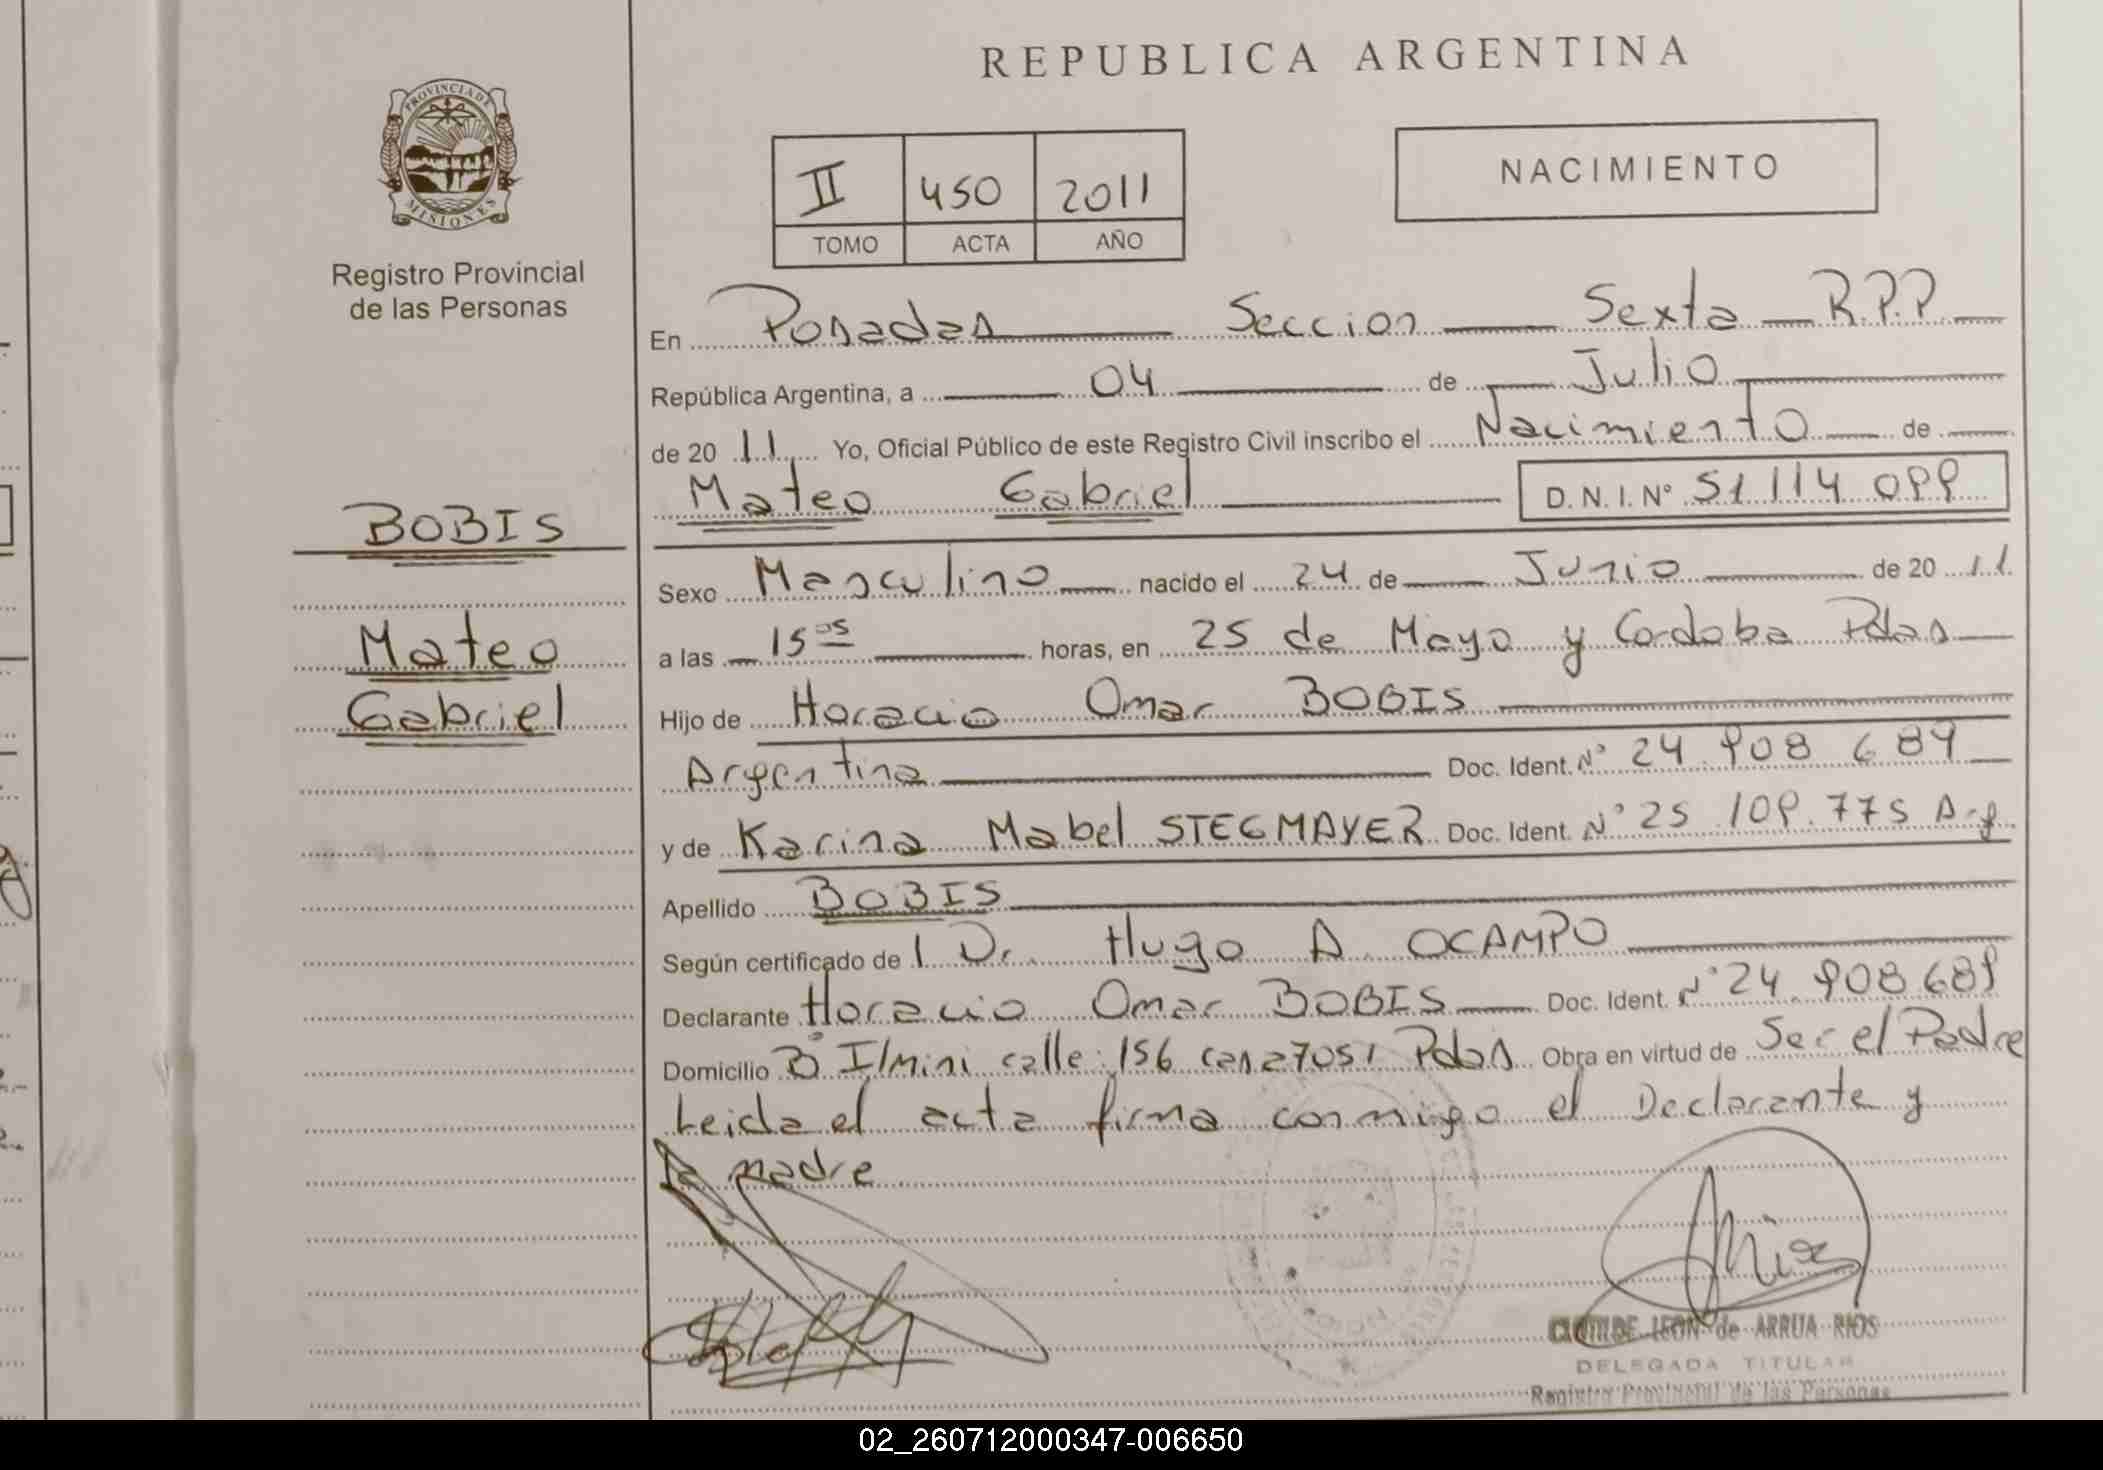 REPUBLICA ARGENTINA
PROVINCIA DE
MISIONES
Registro Provincial
de las Personas
II 450 2011
TOMO ACTA AÑO
NACIMIENTO
En Posadas Seccion Sexta R.P.P
República Argentina, a 04 de Julio
de 20 11 Yo, Oficial Público de este Registro Civil inscribo el Nacimiento de
Mateo Gabriel D. N. I. N° 51.114.099
BOBIS
Mateo
Gabriel
Sexo Masculino nacido el 24 de Junio de 20 11
a las 15 05 horas, en 25 de Mayo y Cordoba Pdas
Hijo de Horacio Omar BOBIS
Argentina Doc. Ident. N° 24 908 689
y de Karina Mabel STEGMAYER Doc. Ident. N° 25 109.775 Arg
Apellido BOBIS
Según certificado de l Dr. Hugo A. OCAMPO
Declarante Horacio Omar BOBIS Doc. Ident. N° 24.908 689
Domicilio B° Itmini calle 156 casa 7051 Pdas Obra en virtud de Ser el Padre
Leida el acta firma conmigo el Declarante y
la madre
CLOTILDE LEON de ARRUA RIOS
DELEGADA TITULAR
Registro Provincial de las Personas
02_260712000347-006650